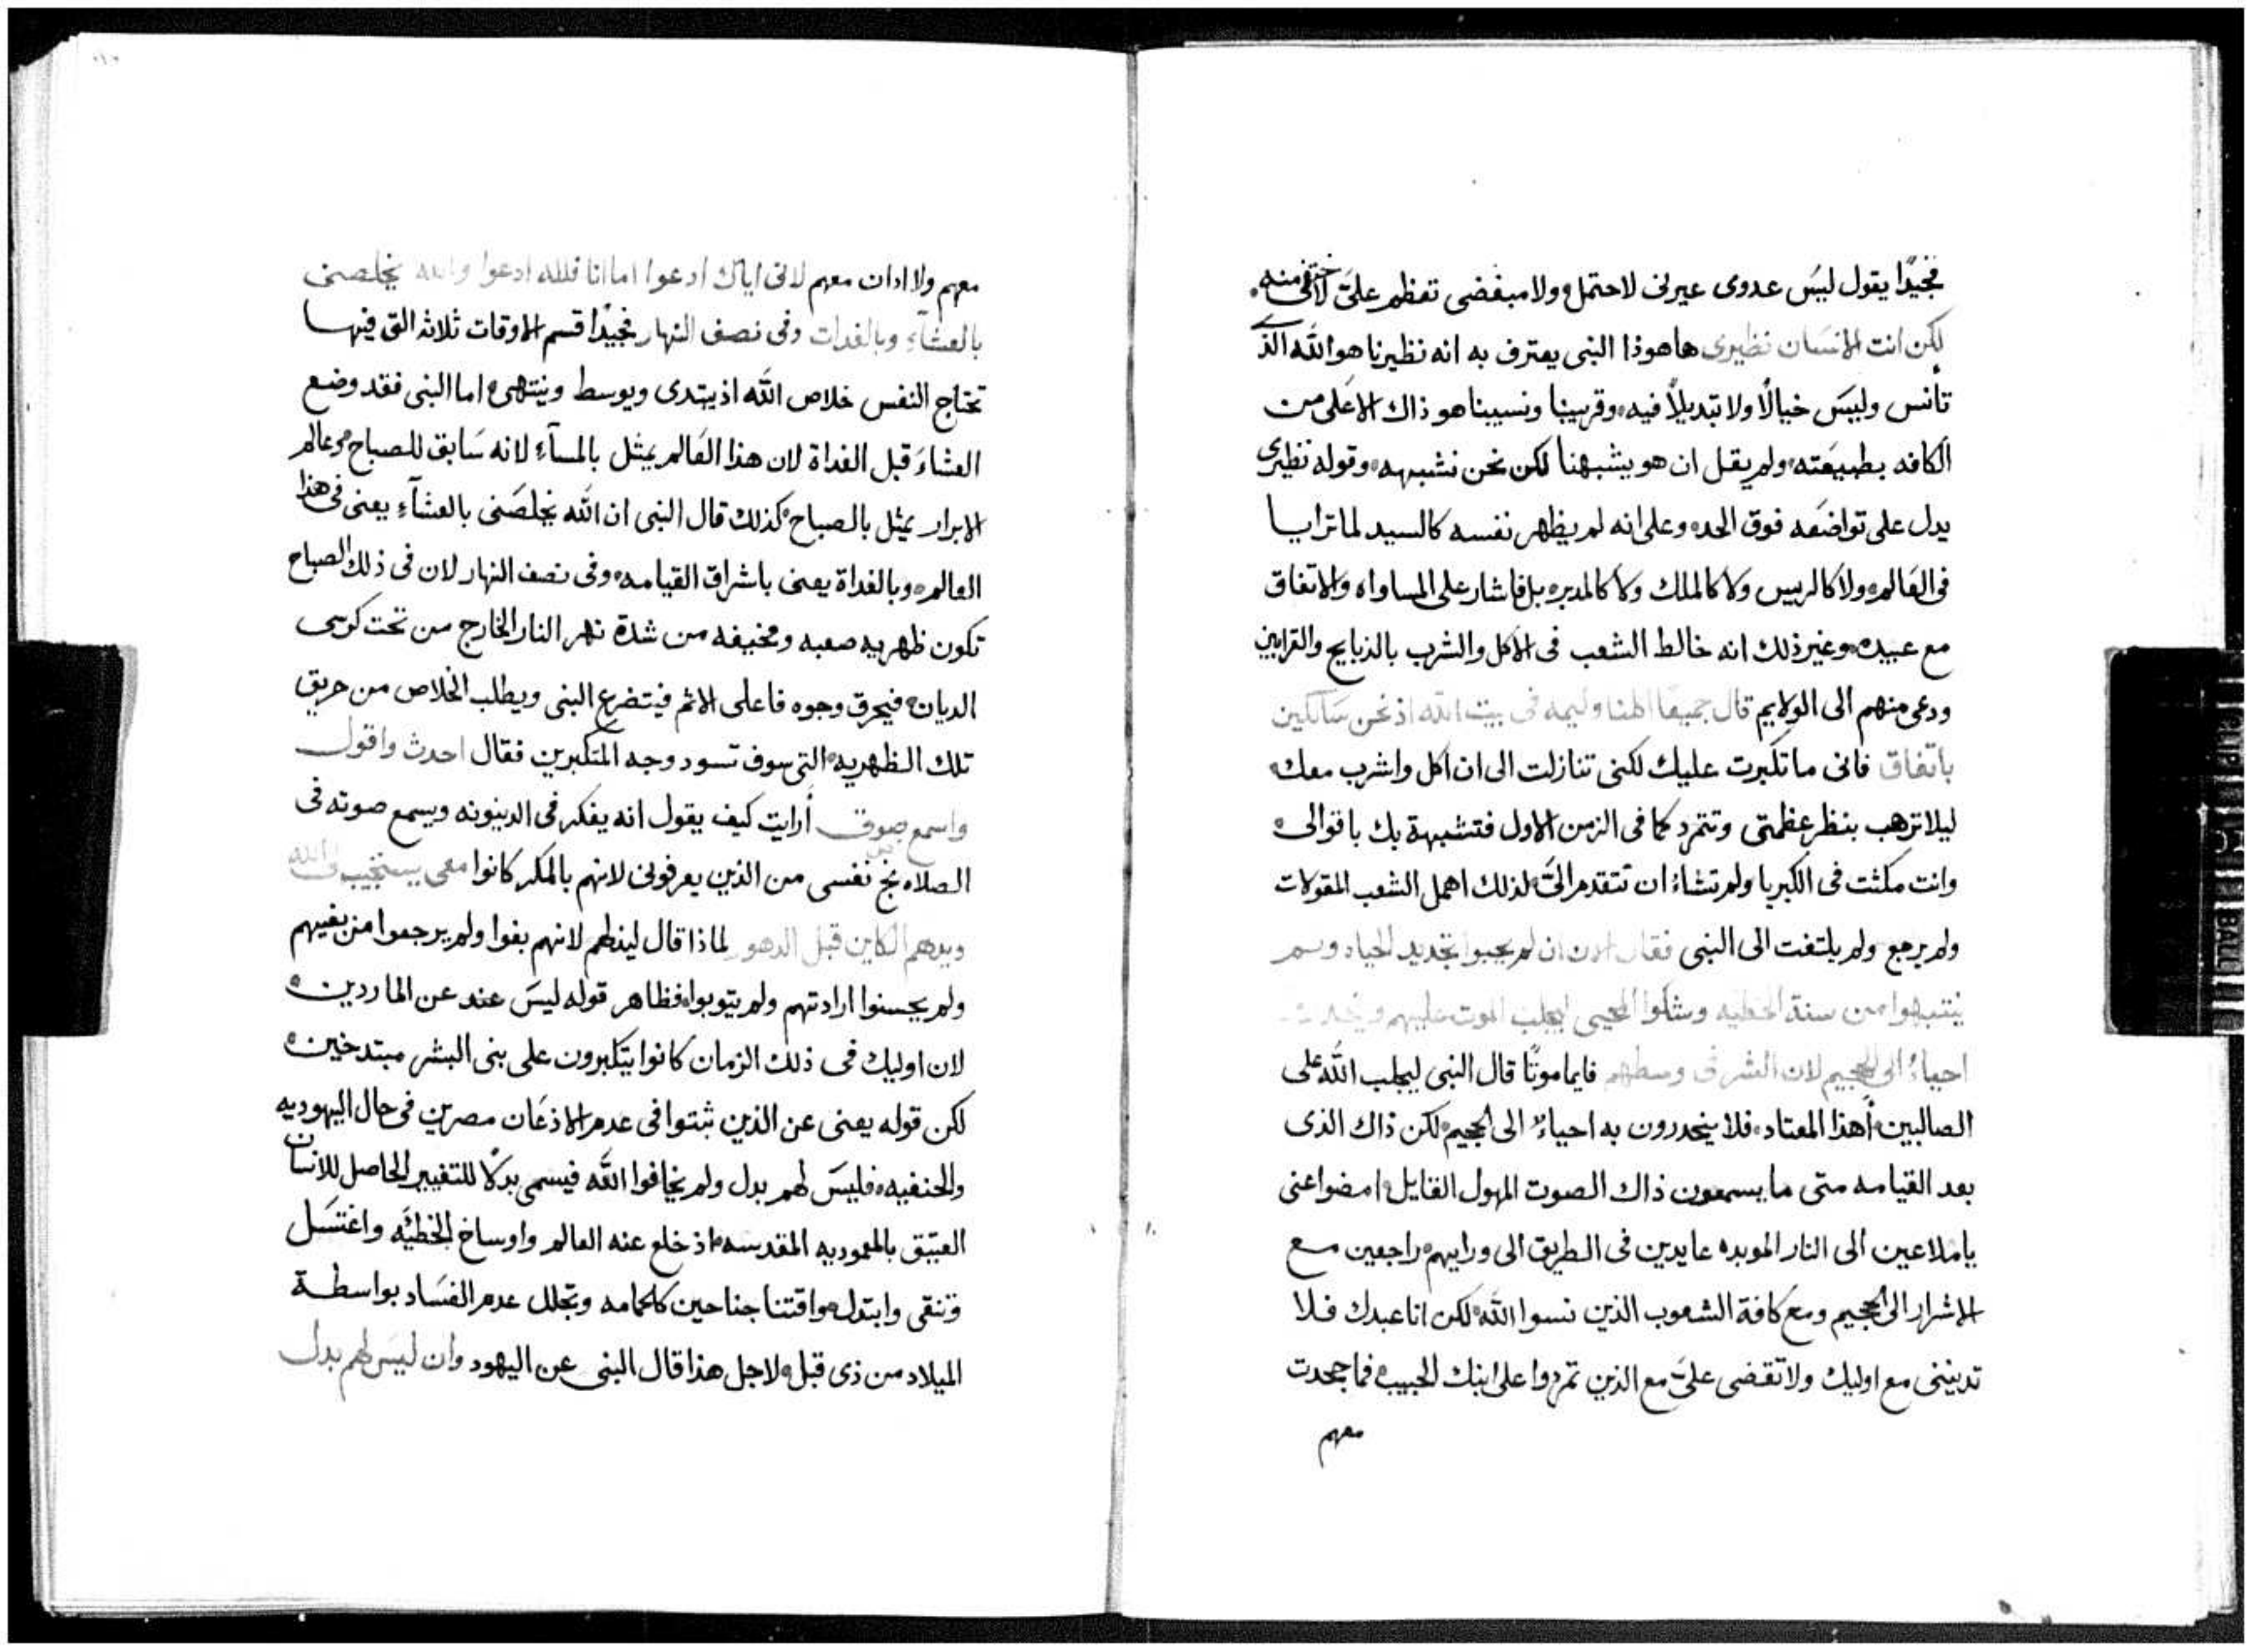 فجيدًا يقول ليسَ عدوى عيرنى لاحتمل ولا مبغضى تعظم علىَّ لاختفى منه
لكن انت الانسَان نظيرى هاهوذا النبى يعترف به انه نظيرنا هو الله الذى
تأنس وليسَ خيالًا ولا تبديلًا فيه وقريبنا ونسيبنا هو ذاك الاعلى من
الكافه بطبيعَته ولم يقل ان هو يشبهنا لكن نحن نشبهه وقوله نظيرى
يدل على تواضعَه فوق الحد وعلى انه لم يظهر نفسه كالسيد لما ترايا
فى العَالم ولا كالريس ولا كالملك ولا كالمدبر بل فاشار على المساواه والاتفاق
مع عبيده وغير ذلك انه خالط الشعب فى الاكل والشرب بالذبايح والقرابين
ودعى منهم الى الولايم قال جميعًا الهنا وليمه فى بيت الله اذ نحن سَالكين
باتفاق فانى ما تكبرت عليك لكنى تنازلت الى ان اكل واشرب معك
ليلا ترهب بنظر عظمتى وتتمرد كما فى الزمن الاول فتشبهة بك باقوالى
وانت مكثت فى الكبريا ولم تشاءُ ان تتقدم الىَّ لذلك اهمل الشعب المقولات
ولم يرجع ولم يلتفت الى النبى فقال ان لم يحبوا تجديد الحياه ولم
ينتبهوا من سنة الخطيه وشكوا المحيى ليجلب الموت عليهم وينحدرون
احياءُ الى الجحيم لان الشر فى وسطهم فايما موتًا قال النبى ليجلب الله على
الصالبين أهذا المعتاد فلا ينحدرون به احياءُ الى الجحيم لكن ذاك الذى
بعد القيامه متى ما يسمعون ذاك الصوت المهول القايل امضوا عنى
يا ملاعين الى النار الموبده عايدين فى الطريق الى ورايهم راجعين مع
الاشرار الى الجحيم ومع كافة الشعوب الذين نسوا الله لكن انا عبدك فلا
تدينى مع اوليك ولا تقضى علىَّ مع الذين تمردوا على ابنك الحبيب فما جحدت
معهم
معهم ولا ادان معهم لانى اياك ادعوا اما انا فلله ادعوا والله يخلصنى
بالعشآءِ وبالغدات وفى نصف النهار فجيدًا قسم الاوقات ثلاثه التى فيها
تحتاج النفس خلاص الله اذ يبتدى ويوسط وينتهى اما النبى فقد وضع
العشاءَ قبل الغداة لان هذا العَالم يمثل بالمسآءِ لانه سَابق للصباح وعالم
الابرار يمثل بالصباح كذلك قال النبى ان الله يخلصَنى بالعشآءِ يعنى فى هذا
العالم وبالغداة يعنى باشراق القيامه وفى نصف النهار لان فى ذلك الصباح
تكون ظهريه صعبه ومخيفه من شدة نهر النار الخارج من تحت كرسى
الديان فيحرق وجوه فاعلى الاثم فيتضرع النبى ويطلب الخلاص من حريق
تلك الظهريه التى سوف تسود وجه المتكبرين فقال احدث واقول
واسمع صوتى أرايت كيف يقول انه يفكر فى الدينونه ويسمع صوته فى
الصلاه نج نفسى من الذين يعرفونى لانهم بالمكر كانوا معى يستجيب الله
ويدهم الكاين قبل الدهو لماذا قال ليذلهم لانهم بغوا ولم يرجعوا من بغيهم
ولم يحسنوا ارادتهم ولم يتوبوا فظاهر قوله ليسَ عند عن الماردين
لان اوليك فى ذلك الزمان كانوا يتكبرون على بنى البشر مبتدخين
لكن قوله يعنى عن الذين ثبتوا فى عدم الاذعَان مصرين فى حال اليهوديه
والحنفيه فليسَ لهم بدل ولم يخافوا الله فيسمى بدلًا للتغيير الحاصل للانسان
العتيق بالمعموديه المقدسه اذ خلع عنه العالم واوساخ الخطيَه واغتسَل
وتنقى وابتدل واقتنا جناحين كالحمامه وتجلل عدم الفسَاد بواسطة
الميلاد من ذى قبل لاجل هذا قال النبى عن اليهود وان ليسَ لهم بدل